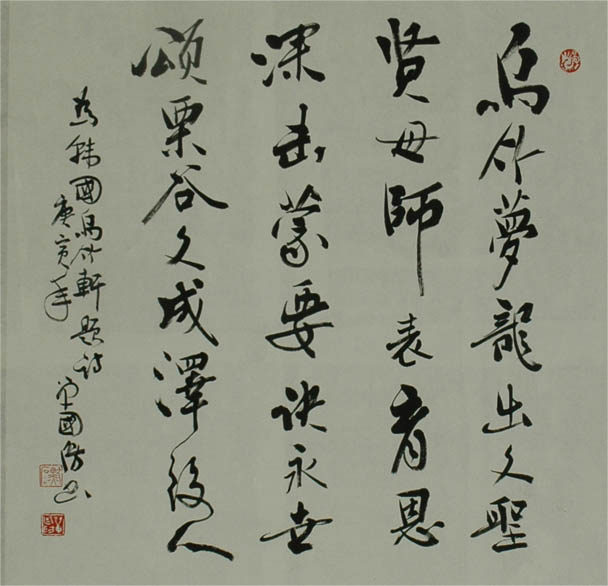 烏竹夢龍出文聖
贤母師表育恩
深击蒙要诀永世
頌栗谷文成澤後人
為韩國烏竹軒題詩
庚寅年